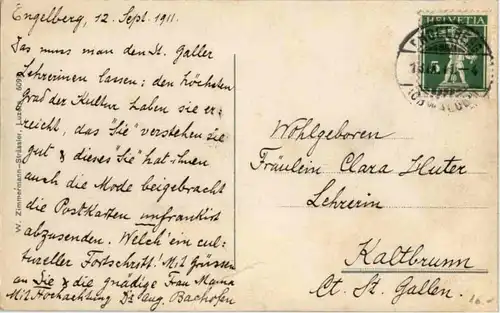 Engelberg, 12. Sept. 1911.
Das muss man den St. Galler
Lehrerinnen lassen: den höchsten
Grad der Kultur haben sie er-
reicht, das "Sie" verstehen sie
gut & dieses "Sie" hat ihnen
auch die Mode beigebracht
die Postkarten unfrankirt
abzusenden. Welch' ein cul-
tureller Fortschritt! Mit Grüssen
an Sie & die gnädige Frau Mama
Mit Hochachtung Dr Aug. Bachofen
W. Zimmermann-Strässler, Luzern. 609
HELVETIA
5
ENGELBERG
(OBWALDEN)
Wohlgeboren
Fräulein Clara Huter
Lehrerin
Kaltbrunn
Ct. St. Gallen.